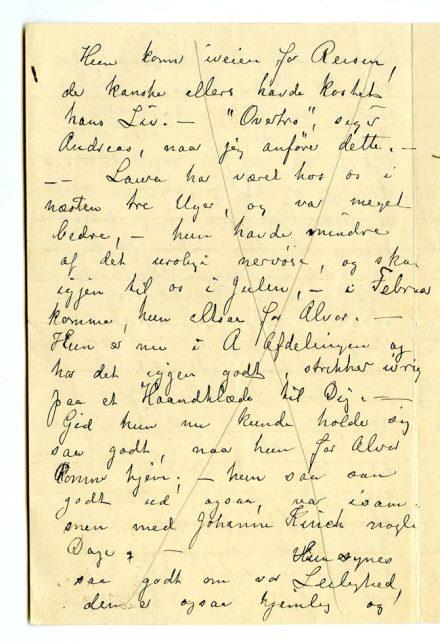 Hun kom iveien for Reisen,
der kanske ellers havde kostet
hans Liv. — "Overtro", siger
Andreas, naar jeg anfører dette. —
—— Laura har været hos os i
næsten tre Uger, og var meget
bedre, — hun havde mindre
af det urolige nervøse, og skal
igjen til os i Julen, — i Februar
kommer hun altsaa for Alvor. —
Hun er nu i A Afdelingen og
har det igjen godt, strikker ivrig
paa et Haandklæde til Dig. —
Gid hun nu kunde holde sig
saa godt, naar hun for Alvor
kommer hjem; — hun saa saa
godt ud ogsaa, var isam-
men med Johanne Kinck nogle
Dage. — Hun synes
saa godt om vor Leilighed,
den er ogsaa hjemlig og